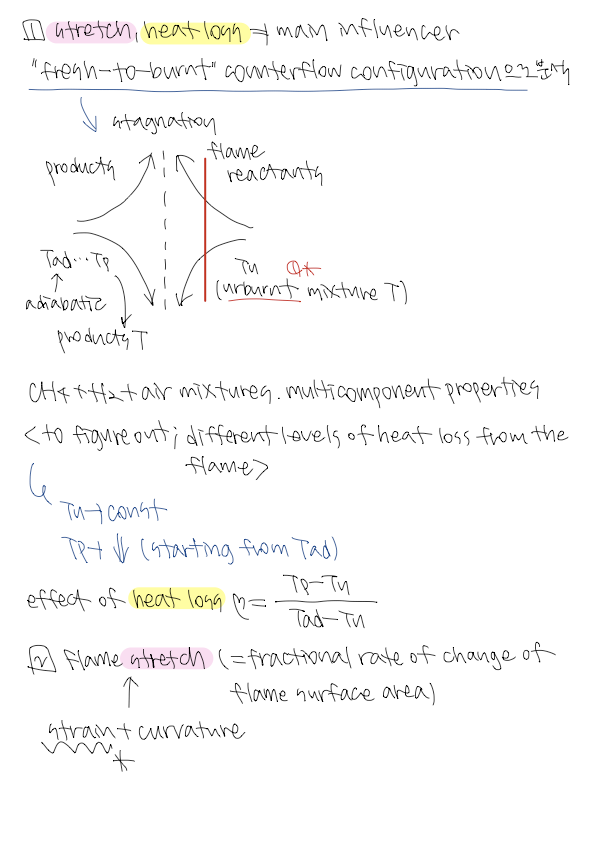 1 stretch, heat loss → main influencer
"fresh-to-burnt" counterflow configuration으로 분석
stagnation
flame
products
reactants
Tad...Tp
adiabatic
products T
Tu ①*
(unburnt mixture T)
CH4 + H2 + air mixtures. multicomponent properties
<to figure out; different levels of heat loss from the
flame>
Tu → const
Tp → ↓ (starting from Tad)
effect of heat loss η = (Tp-Tu)/(Tad-Tu)
2 Flame stretch (=fractional rate of change of
flame surface area)
strain + curvature
*